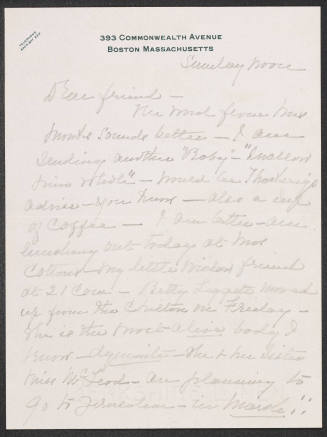 393 COMMONWEALTH AVENUE
BOSTON MASSACHUSETTS
Sunday noon
Dear friend —
The word from Mrs
sounds better — I am
sending another "Baby" — "Swallow
him whole" — would be
advice — you know — also a cup
of coffee — I am better — am
lunching out today at Mrs
my little friend
at 21 Com — Betty Leggett moved
up from the on Friday —
She is the most alive body I
know — dynamite — She & her sister
Miss McLeod — are planning to
go to Jerusalem — in March!!